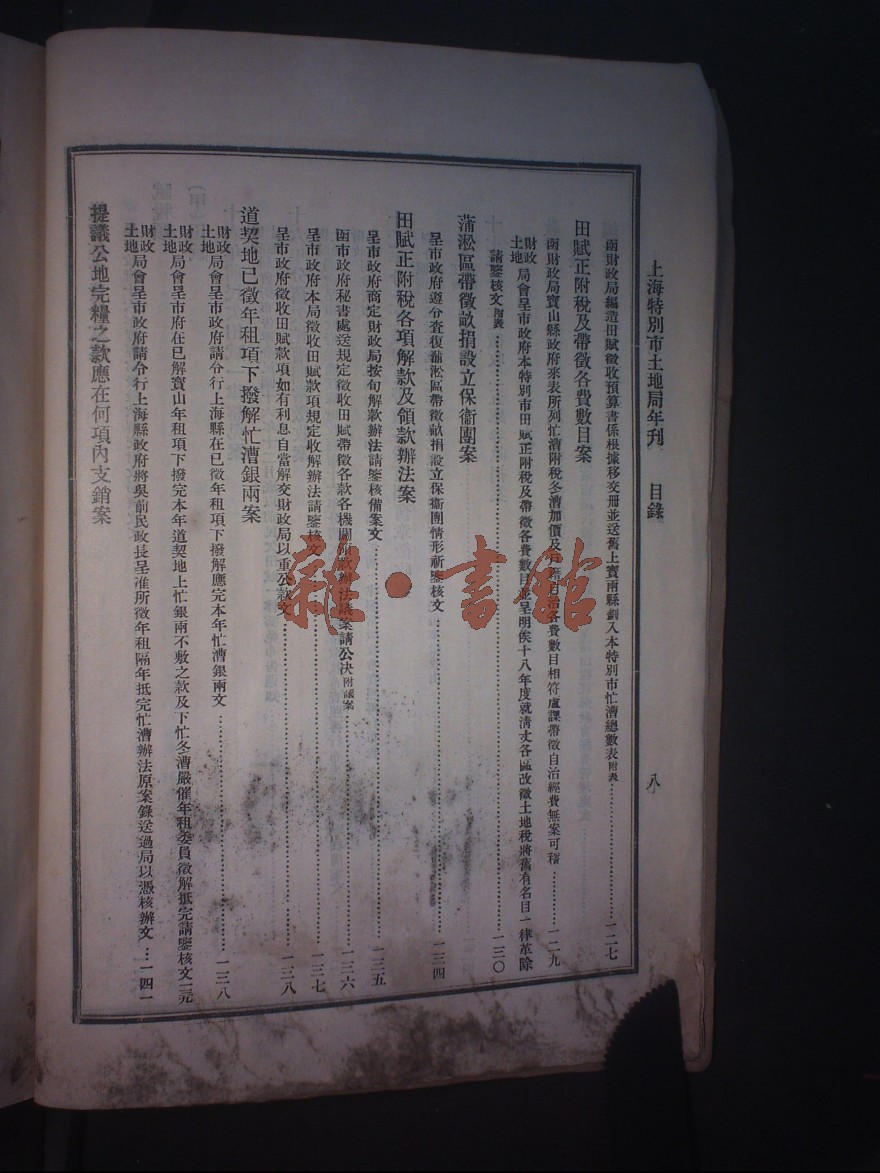 上海特別市土地局年刊 目錄 八
函財政局編造田賦徵收預算書係根據移交冊並送舊上寶兩縣劃入本特別市忙漕總數表附表……一二七
田賦正附稅及帶徵各費數目案
函財政局寶山縣政府來表所列忙漕附稅冬漕加價及自治各費數目相符蘆課帶徵自治經費無案可稽……一二九
財政土地局會呈市政府本特別市田賦正附稅及帶徵各費數目並呈明俟十八年度就清丈各區改徵土地稅將舊有名目一律革除
請鑒核文附表……一三〇
蒲淞區帶徵畝捐設立保衞團案
呈市政府遵令查復蒲淞區帶徵畝捐設立保衞團情形祈鑒核文……一三四
田賦正附稅各項解款及領款辦法案
呈市政府商定財政局按旬解款辦法請鑒核備案文……一三五
函市政府秘書處送規定徵收田賦帶徵各款各機關領款辦法議案請公決附議案……一三六
呈市政府本局徵收田賦款項規定收解辦法請鑒核文……一三七
呈市政府徵收田賦款項如有利息自當解交財政局以重公款文……一三八
道契地已徵年租項下撥解忙漕銀兩案
財政土地局會呈市政府請令行上海縣在已徵年租項下撥解應完本年忙漕銀兩文……一三八
財政土地局會呈市府在已解寶山年租項下撥完本年道契地上忙銀兩不敷之款及下忙冬漕嚴催年租委員徵解抵完請鑒核文一元
財政土地局會呈市政府請令行上海縣政府將吳前民政長呈准所徵年租隔年抵完忙漕辦法原案錄送過局以憑核辦文…一四一
提議公地完糧之款應在何項內支銷案
雜·書館